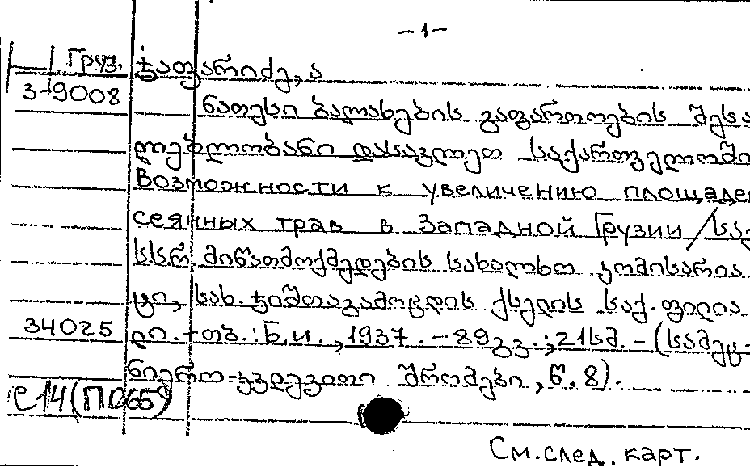 -1-
Груз. ჯაფარიძე, ა
3-19008 ნათესი ბალახების გაფართოების შესა
ლებლობანი დასავლეთ საქართველოში
Возможности к увеличению площадей
сеянных трав в Западной Грузии / სა
სსრ მიწათმოქმედების სახალხო კომისარია
ტი, სახ. ჯიშთაგამოცდის ქსელის საქ. ფილია
34025 ლი. - თბ. : Б.и., 1937. - 89 გვ. ; 21 სმ. - (სამეც-
ნიერო-კვლევითი შრომები, ნ. 8).
С14(П065)
См. след. карт.